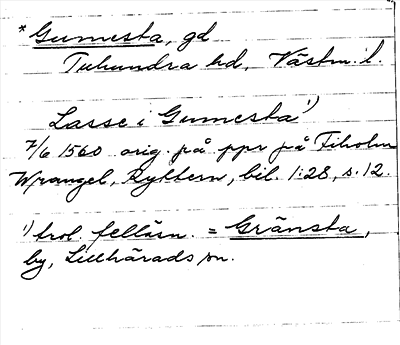 * Gumesta, gd
Tuhundra hd, Västm. l.
Lasse i Gumesta 1)
7/6 1560 orig. på ppr på Tiholm
Wrangel, Ryttern, bil. 1:28, s. 12.
1) trol. felläsn. = Gränsta,
by, Lillhärads sn.